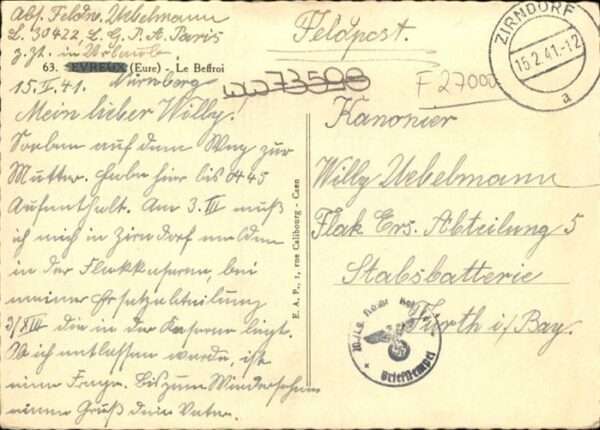 Abs. Feldw. Uebelmann
L. 30422, L. G. P. A. Paris
z. Zt. in Urlaub
63. EVREUX (Eure) - Le Beffroi
15. II. 41. Nürnberg
Mein lieber Willy!
Soeben auf dem Weg zur
Mutter. Habe hier bis 04 45
Aufenthalt. Am 3. III muß
ich mich in Zirndorf melden
in der Flakkaserne, bei
meiner Ersatzabteilung
3/XIII die in der Kaserne liegt.
Ob ich entlassen werde, ist
eine Frage. Bis zum Wiedersehen
einen Gruß dein Vater.
E. A. P., 1, rue Calibourg - Caen
Feldpost.
ZIRNDORF
15.2.41.-12
a
F 27000
Kanonier
Willy Uebelmann
Flak Ers. Abteilung 5
Stabsbatterie
Fürth i/Bay.
Briefstempel